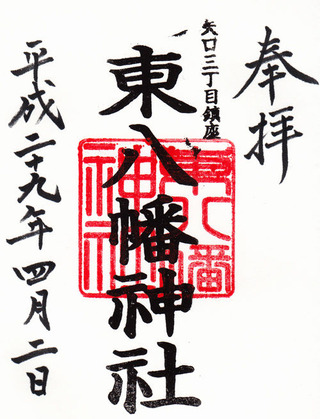 奉拝
矢口三丁目鎮座
東八幡神社
東八幡神社
平成二十九年四月二日